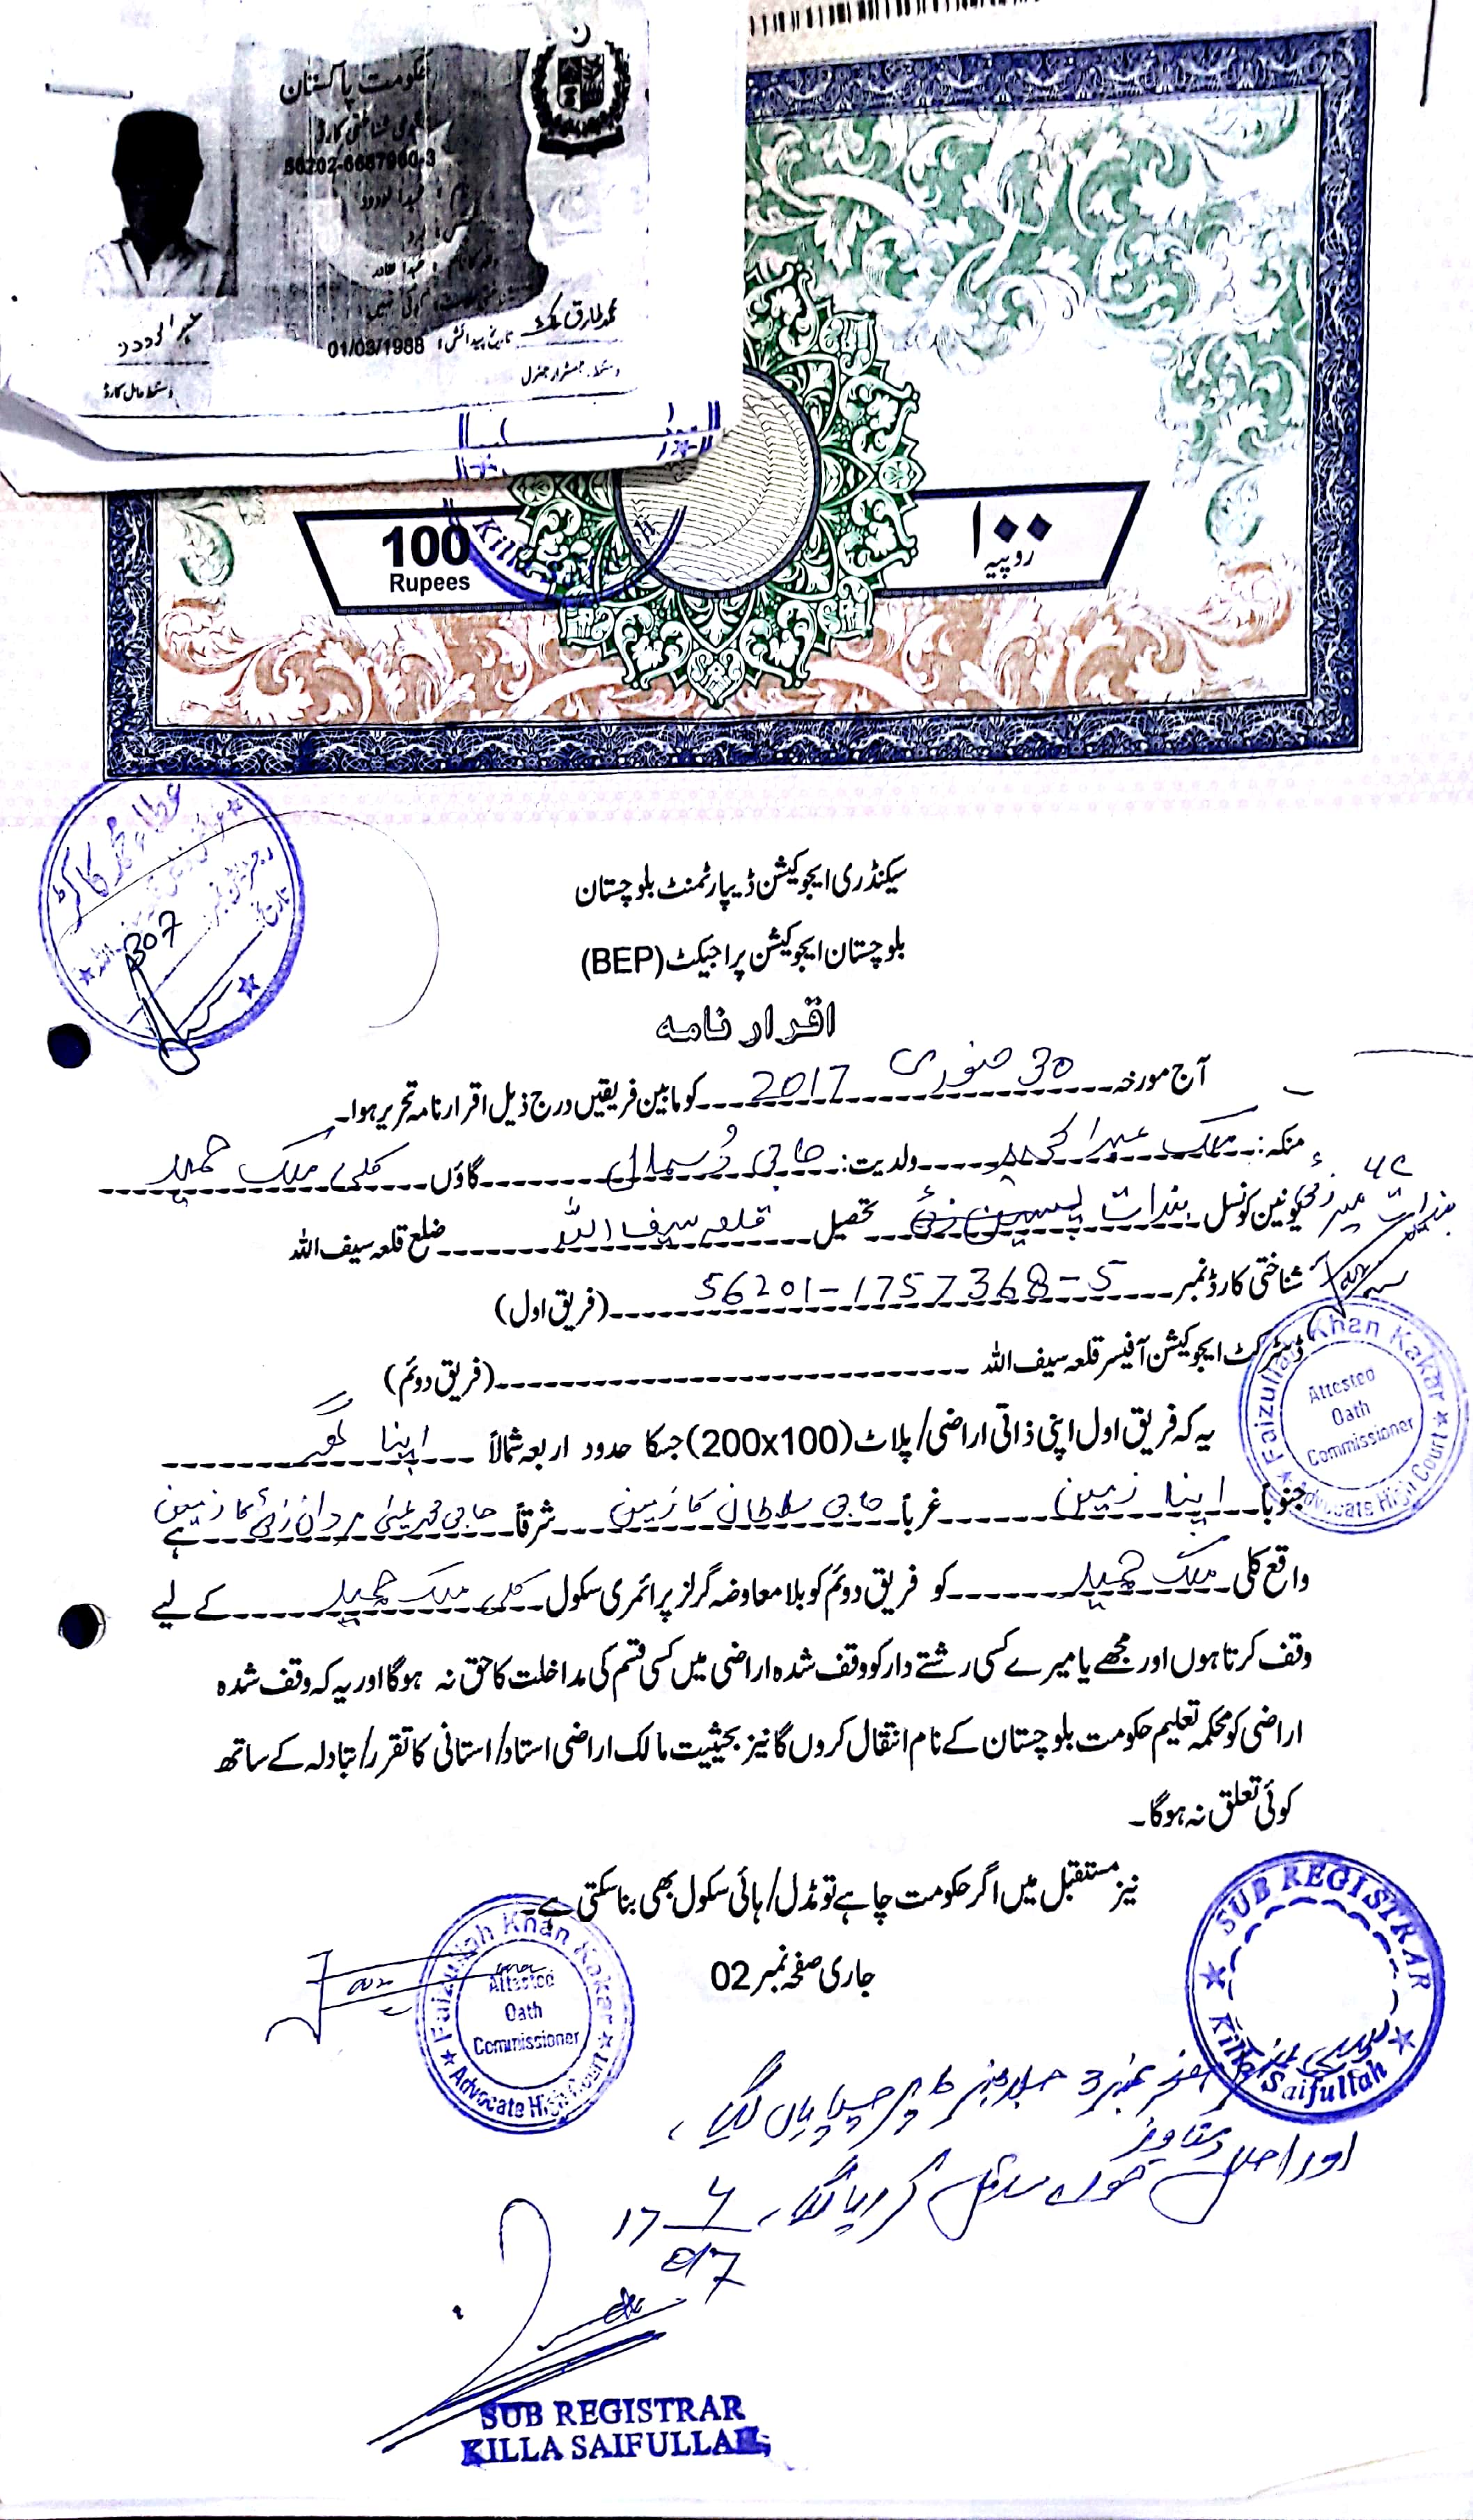 حکومت پاکستان
تاریخ پیدائش: 01/03/1988
دستخط حامل کارڈ
دستخط رجسٹرار جنرل
100
Rupees
۱۰۰
روپیہ
Killa
عطاء محمد کاکڑ
307
سیکنڈری ایجوکیشن ڈیپارٹمنٹ بلوچستان
بلوچستان ایجوکیشن پراجیکٹ (BEP)
اقرار نامہ
آج مورخہ 30 جنوری 2017 کو مابین فریقیں درج ذیل اقرار نامہ تحریر ہوا۔
منکہ: ملک عبدالحمید ولدیت: حاجی گاؤں کلی ملک حمید
یونین کونسل تحصیل قلعہ سیف اللہ ضلع قلعہ سیف اللہ
شناختی کارڈ نمبر 56201-1757368-5 (فریق اول)
ڈسٹرکٹ ایجوکیشن آفیسر قلعہ سیف اللہ (فریق دوئم)
یہ کہ فریق اول اپنی ذاتی اراضی/پلاٹ (200x100) جسکا حدود اربعہ شمالاً اپنا گھر
جنوباً اپنا زمین غرباً حاجی سلطان کا زمین شرقاً حاجی محمد کا زمین ہے
واقع کلی ملک حمید کو فریق دوئم کو بلا معاوضہ گرلز پرائمری سکول کلی ملک حمید کے لیے
وقف کرتا ہوں اور مجھے یا میرے کسی رشتے دار کو وقف شدہ اراضی میں کسی قسم کی مداخلت کا حق نہ ہوگا اور یہ کہ وقف شدہ
اراضی کو محکمہ تعلیم حکومت بلوچستان کے نام انتقال کروں گا نیز بحیثیت مالک اراضی استاد/استانی کا تقرر/تبادلہ کے ساتھ
کوئی تعلق نہ ہوگا۔
نیز مستقبل میں اگر حکومت چاہے تو مڈل/ہائی سکول بھی بنا سکتی ہے۔
جاری صفحہ نمبر 02
Faizullah Khan Kakar
Attested
Oath
Commissioner
Advocate High Court
Faizullah Khan Kakar
Attested
Oath
Commissioner
Advocate High Court
SUB REGISTRAR
Killa Saifullah
اور اصل دستاویز
SUB REGISTRAR
KILLA SAIFULLAH